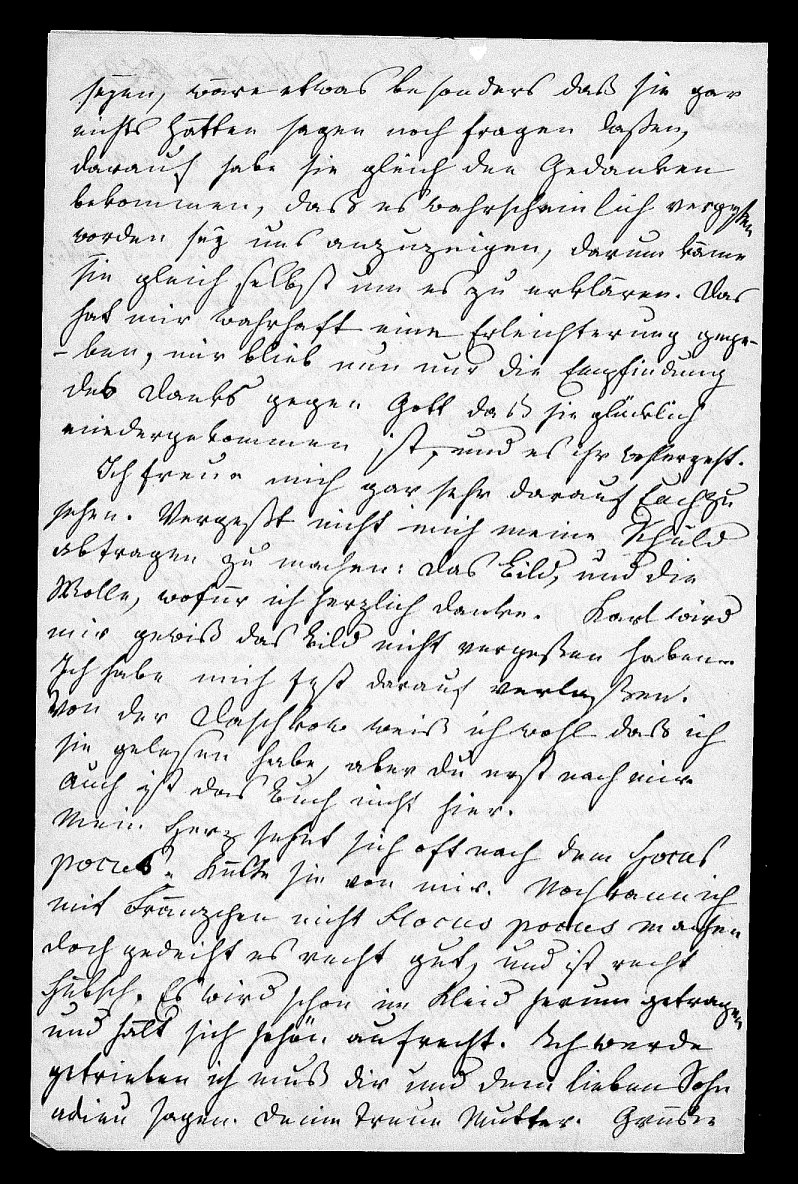 seyen, wäre etwas besonders daß sie gar
nichts hätten sagen noch fragen laßen,
darauf habe sie gleich den Gedanken
bekommen, daß es wahrscheinlich vergeßen
worden sey uns anzuzeigen, darum käme
sie gleich selbst um es zu erklären. Das
hat mir wahrhaft eine Erleichterung gege-
-ben, mir blieb nun nur die Empfindung
des Danks gegen Gott daß sie glücklich
niedergekommen ist, und es ihr besser geht.
Ich freue mich gar sehr darauf Euch zu
sehen. Vergeßt nicht mich meine Schuld
abtragen zu machen: das Bild, und die
Wolle, wofür ich herzlich danke. Karl wird
mir gewiß das Bild nicht vergeßen haben.
Ich habe mich fest darauf verlaßen.
Von der Daschkow weiß ich wohl daß ich
sie gelesen habe, aber du erst nach mir.
Auch ist das Buch nicht hier.
Mein Herz sehnt sich oft nach dem Hocus
pocus. Küße sie von mir. Noch kann ich
mit Fränzchen nicht Hocus pocus machen
doch gedeiht es recht gut, und ist recht
hübsch. Es wird schon im Kleid herum getragen
und hält sich schön aufrecht. Ich werde
getrieben ich muß dir und dem lieben Sohn
adieu sagen. Deine treue Mutter. Grüße